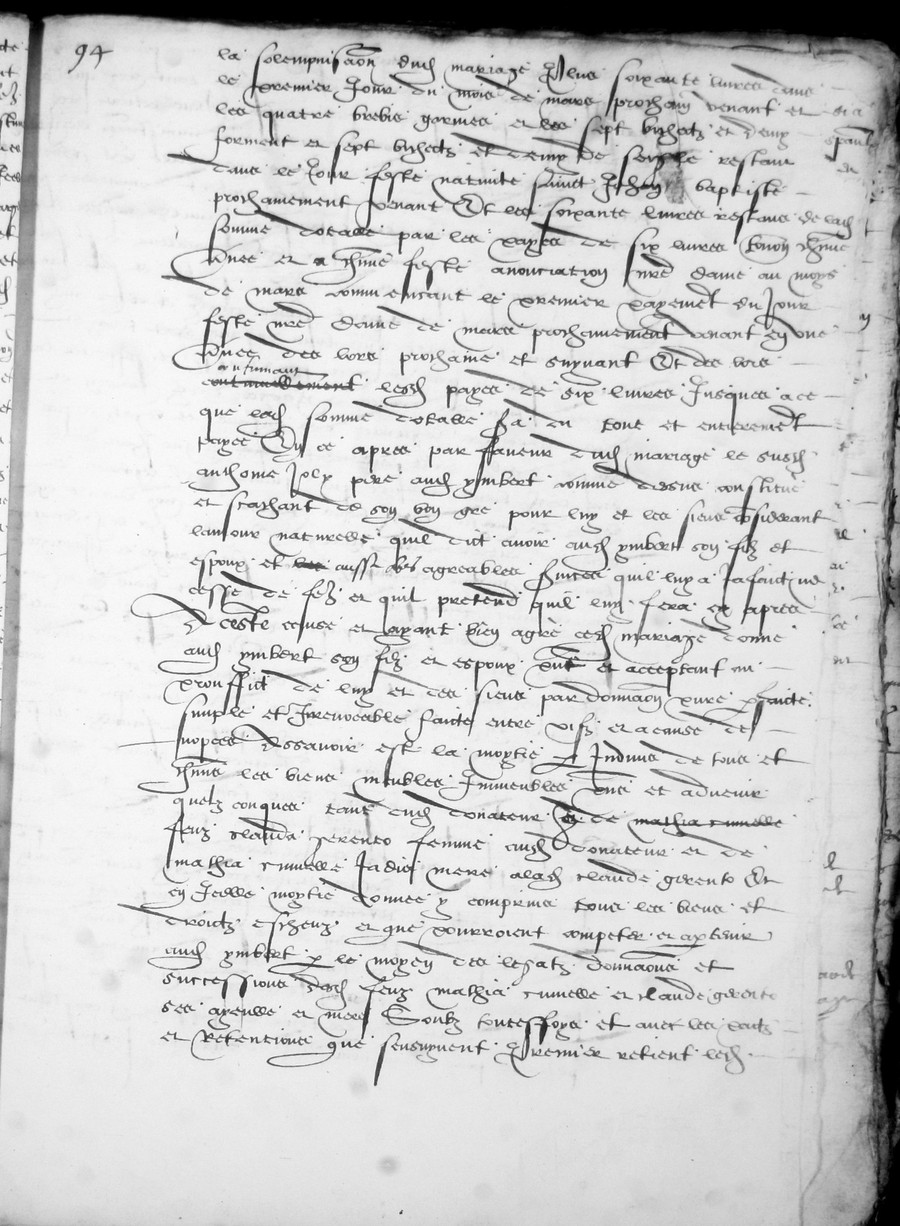 94
la solempnisaon dud mariaige Plus soixante livres dans
le premier Jour du mois de mars prochain venant et
les quatre brebis garnies et les sept bichetz et demy
forment et sept bichetz et demy de seigle restant
dans le Jour feste nativite sainct Jehan baptiste
prochainement venant Et les soixante livres restans de lad
somme dotalle par les payes de six livres
Annee et a feste anonciation nre dame au moys
de mars commencant le premier payement du Jour
feste nre dame de mars prochainement venant en une
Annee des lors prochaine et suyvant Et des lors
continuellement
en suivant lesd payes de six livres Jusques a ce
que lad somme dotalle en tout et entierement
payee Et ce apres par faveur dud mariaige le susd
anthoine Joly pere aud ymbert comme dessus constitue
et scachant de son bon gre pour luy et les siens considerant
lamour naturelle quil dit avoir aud ymbert son filz et
espoux et aussi agreables services quil luy a Ja faict ne
cesse de fe et quil pretend quil luy fera cy apres
A ceste cause et ayant bien agre ced mariaige donne
aud ymbert son filz et espoux pnt et acceptant au
prouffict de luy et des siens par donnaon pure parfaicte
simple et Irrevocable faicte entre vifz et a cause de
nopces Assavoir est la moytie p Indivis de tous et
les biens meubles Immeubles pns et advenir
quelz conques tant dud donateur que de mathia cunelle
feuz claude gerento femme aud donateur et de
mathia cunelle Jadis mere a lad claude gerento Et
en Icelle moytie donnee y comprins tous les biens et
droictz escheuz et que pourroient competer et aptenir
aud ymbert p le moyen des legatz donnaons et
successions desd feuz mathia cunelle et claude gerento
ses ayeulle et mere Soubz toutesfoys et avec les pactz
et retentions que sensuyvent Premier retient led